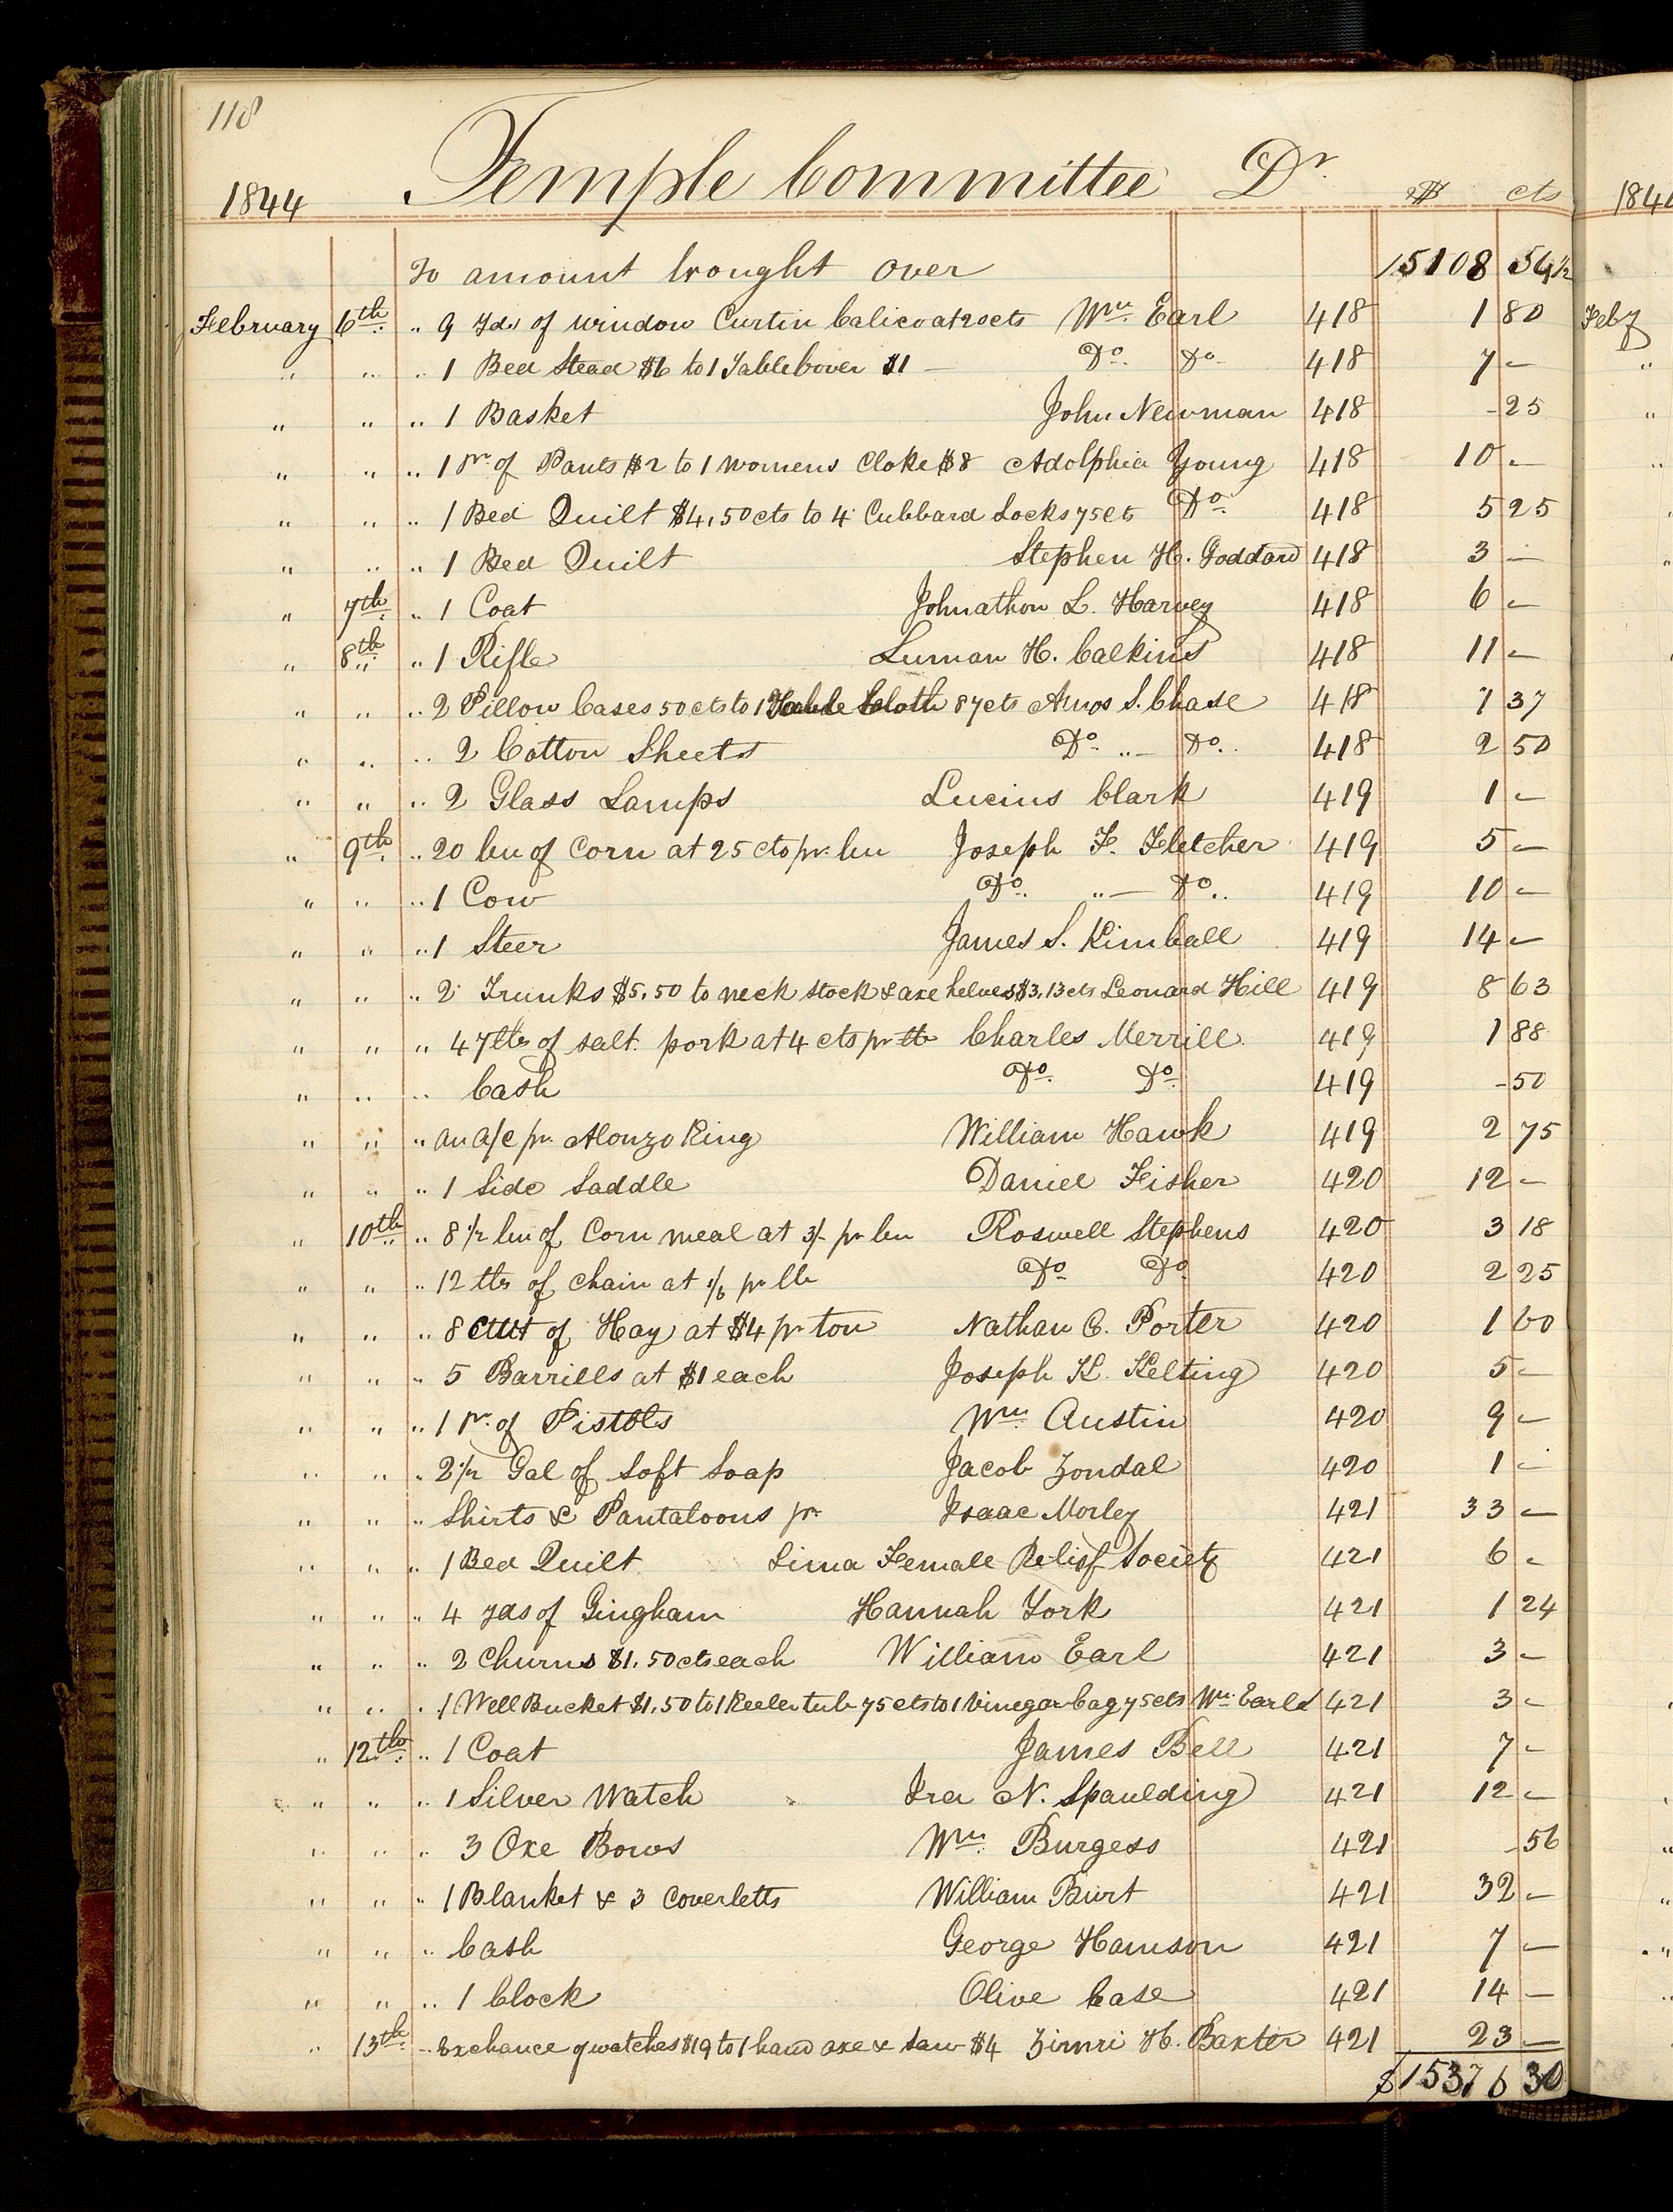 118
Temple Committee Dr.
1844 $ cts 184
To amount brought over 15108 54½
February 6th. " 9 Yds of Window Curtin Calico at 20 cts Wm. Earl 418 1 80 Feby
" " " 1 Bed Stead $6 to 1 Table Cover $1 — Do. Do. 418 7 —
" " " 1 Basket John Newman 418 - 25
" " " 1 Pr. of Pants $2 to 1 womens Cloke $8 Adolphia Young 418 10 —
" " " 1 Bed Quilt $4,50 cts to 4 Cubbard Locks 75 cts Do. 418 5 25
" " " 1 Bed Quilt Stephen H. Goddard 418 3 —
" 7th. " 1 Coat Johnathon L. Harvey 418 6 —
" 8th " 1 Rifle Luman H. Calkins 418 11 —
" " " 2 Pillow Cases 50 cts to 1 Table Cloth 87 cts Amos S. Chase 418 1 37
" " " 2 Cotton Sheets Do. " — Do. 418 2 50
" " " 2 Glass Lamps Lucius Clark 419 1 —
" 9th. " 20 bu of Corn at 25 cts pr. bu Joseph F. Fletcher 419 5 —
" " " 1 Cow Do. " — Do. 419 10 —
" " " 1 Steer James S. Kimball 419 14 —
" " " 2 Trunks $5,50 to neck stock & axe helves $3,13 cts Leonard Hill 419 8 63
" " " 47 lbs of salt pork at 4 cts pr lb Charles Merrill 419 1 88
" " " Cash Do. Do. 419 - 50
" " " an a/c pr. Alonzo King William Hawk 419 2 75
" " " 1 Side Saddle Daniel Fisher 420 12 —
" 10th " 8½ bu of Corn meal at 3/- pr bu Roswell Stephens 420 3 18
" " " 12 lbs of chain at 1/6 pr lb Do. Do. 420 2 25
" " " 8 Cwt of Hay at $4 pr ton Nathan C. Porter 420 1 60
" " " 5 Barrills at $1 each Joseph K. Kelting 420 5 —
" " " 1 Pr. of Pistols Wm. Austin 420 9 —
" " " 2½ Gal of Soft Soap Jacob Zondal 420 1 —
" " " Shirts & Pantaloons pr. Isaac Morley 421 33 —
" " " 1 Bed Quilt Lima Female Relief Society 421 6 —
" " " 4 yds of Gingham Hannah York 421 1 24
" " " 2 Churns $1,50 cts each William Earl 421 3 —
" " " 1 Well Bucket $1,50 to 1 Keeler tub 75 cts to 1 Vinegar Cag 75 cts Wm. Earl 421 3 —
" 12th. " 1 Coat James Bell 421 7 —
" " " 1 Silver Watch Ira N. Spaulding 421 12 —
" " " 3 Oxe Bows Wm. Burgess 421 - 56
" " " 1 Blanket & 3 Coverletts William Burt 421 32 —
" " " Cash George Hamson 421 7 —
" " " 1 Clock Olive Case 421 14 —
" 13th. " Exchance of watches $19 to 1 hand axe & Saw $4 Zimri H. Baxter 421 23 —
$15376 30